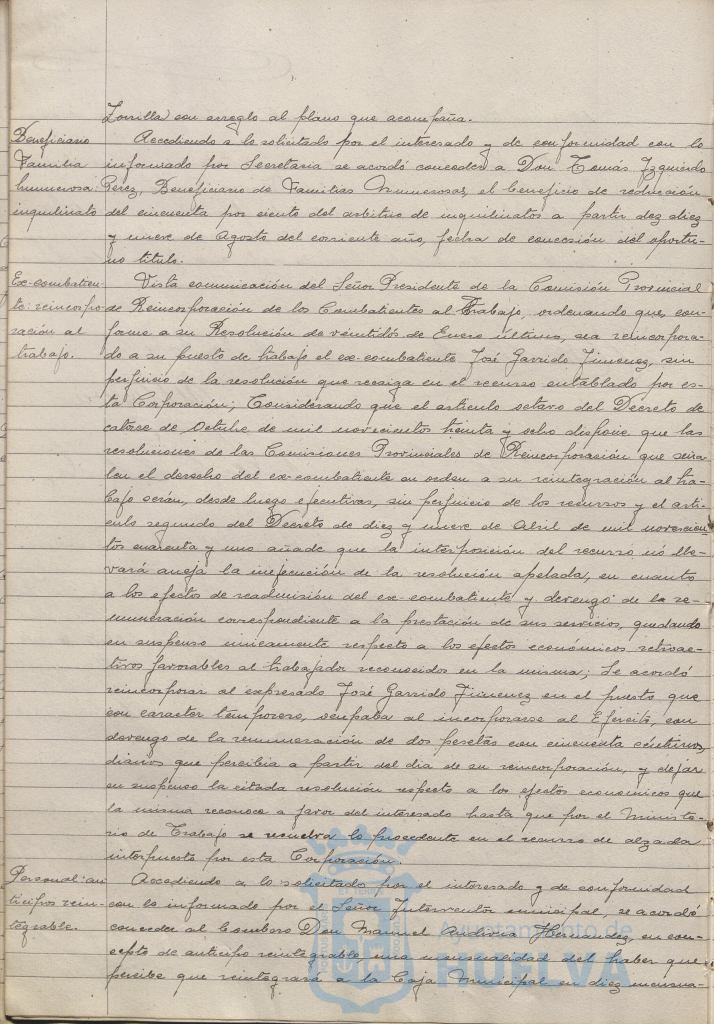 Zorrilla con arreglo al plano que acompaña.
Beneficiario
Familia
humerosa
inquilinato
Accediendo a lo solicitado por el interesado y de conformidad con lo
informado por Secretaria se acordó conceder a Don Tomás Izquierdo
Perez, Beneficiario de Familias Numerosas, el beneficio de reducción
del cincuenta por ciento del arbitrio de inquilinatos a partir dez diez
y nueve de Agosto del corriente año, fecha de concesión del oportu-
no titulo.
Ex-combatien-
te: reincorpo-
ración al
trabajo.
Vista comunicación del Señor Presidente de la Comisión Provincial
de Reincorporación de los Combatientes al Trabajo, ordenando que, con-
forme a su Resolución de veintidós de Enero último, sea reincorpora-
do a su puesto de trabajo el ex-combatiente José Garrido Jimenez, sin
perjuicio de la resolución que recaiga en el recurso entablado por es-
ta Corporación; Considerando que el articulo octavo del Decreto de
catorce de Octubre de mil novecientos treinta y ocho dispone que las
resoluciones de las Comisiones Provinciales de Reincorporación que seña-
len el derecho del ex-combatiente en orden a su reintegración al tra-
bajo serán, desde luego ejecutivas, sin perjuicio de los recursos y el arti-
culo segundo del Decreto de diez y nueve de Abril de mil novecien-
tos cuarenta y uno añade que la interposición del recurso no lle-
vará aneja la inejecución de la resolución apelada, en cuanto
a los efectos de readmisión del ex-combatiente y devengo de la re-
muneración correspondiente a la prestación de sus servicios, quedando
en suspenso únicamente respecto a los efectos económicos retroac-
tivos favorables al trabajador reconocidos en la misma; Se acordó
reincorporar al expresado José Garrido Jimenez en el puesto que
con caracter temporero, ocupaba al incorporarse al Ejército, con
devengo de la remuneración de dos pesetas con cincuenta céntimos,
diarios que percibia a partir del dia de su reincorporación, y dejar
en suspenso la citada resolución respecto a los efectos economicos que
la misma reconoce a favor del interesado hasta que por el Ministe-
rio de Trabajo se resuelva lo procedente en el recurso de alzada
interpuesto por esta Corporación.
Personal: an-
ticipos rein-
tegrable.
Accediendo a lo solicitado por el interesado y de conformidad
con lo informado por el Señor Interventor municipal, se acordó
conceder al bombero Don Manuel Andivia Hernandez, en con-
cepto de anticipo reintegrable, una mensualidad del haber que
percibe que reintegrará a la Caja Municipal en diez mensua-
Ayuntamiento de
HUELVA